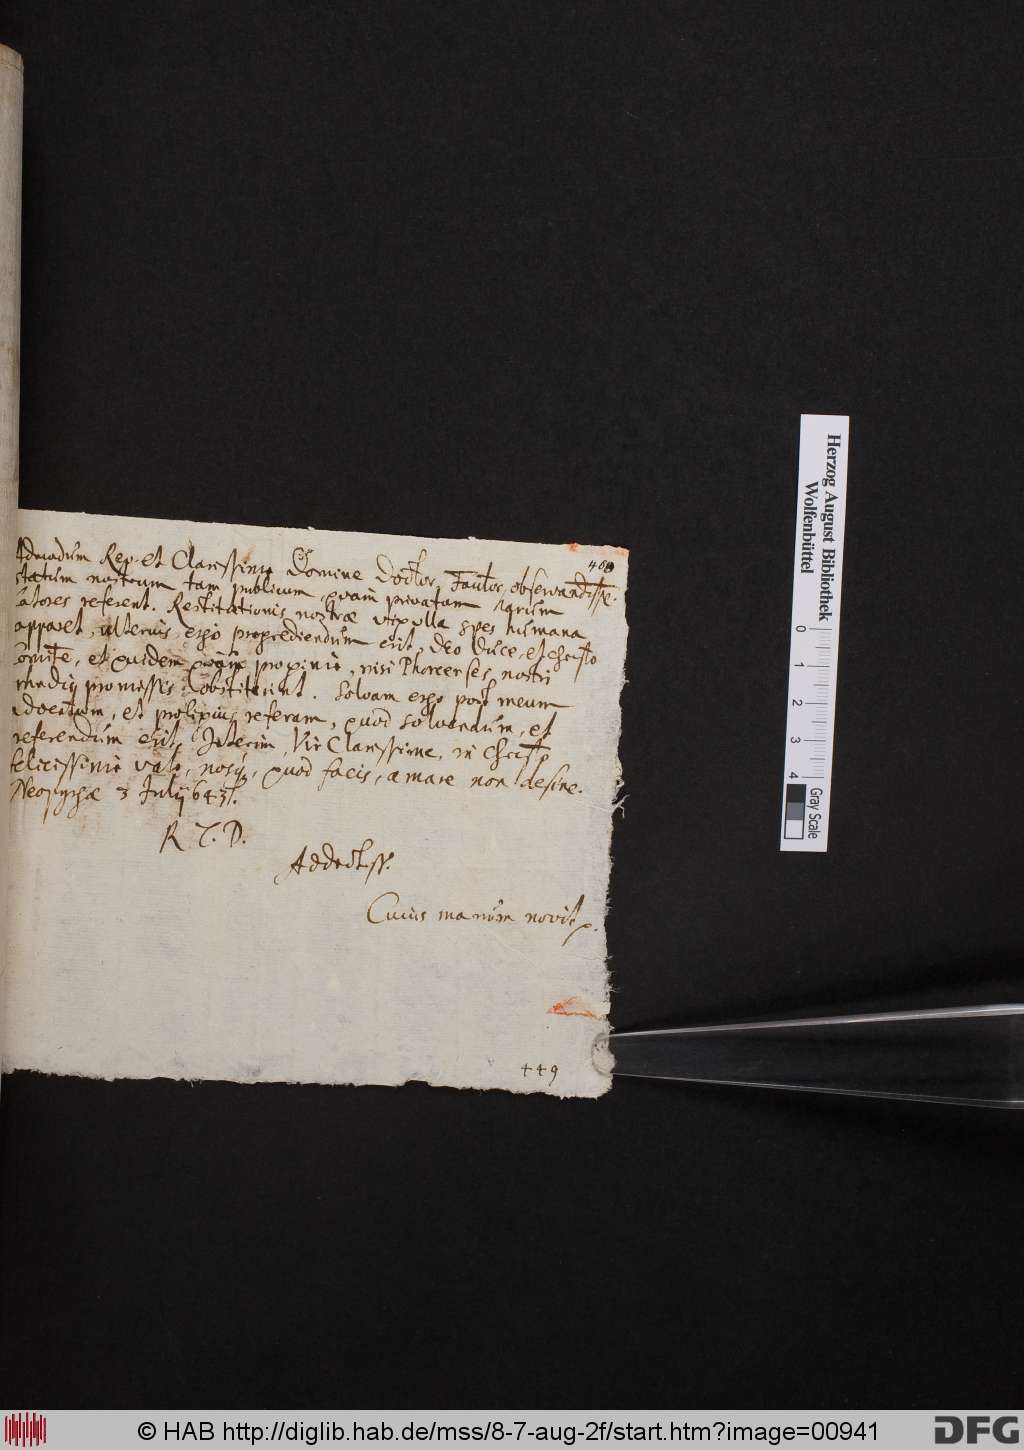 468
Admodum Rev. et Clarissime Domine Doctor, Fautor observandisse.
statum nostrum tam publicum, quam privatum harum
latores referent. Restitutionis nostræ vix ulla spes humana
apparet, ulterius ergo progrediendum erit, Deo Duce, et Christo
Comite, et quidem propinie, nisi nostri
promissis obstiterint. Solvam ergo post meum
adventum, et prolixius referam, quod solvendum, et
referendum erit, Interim, Vir Clarissime, in Christo
felicissime vale, nosq, quod facis, amare non desine.
3 Julij 643.
R T. D.
Addictiss.
Cuius manum novit
449
Herzog August Bibliothek
Wolfenbüttel
0 1 2 3 4
Gray Scale
© HAB http://diglib.hab.de/mss/8-7-aug-2f/start.htm?image=00941
DFG